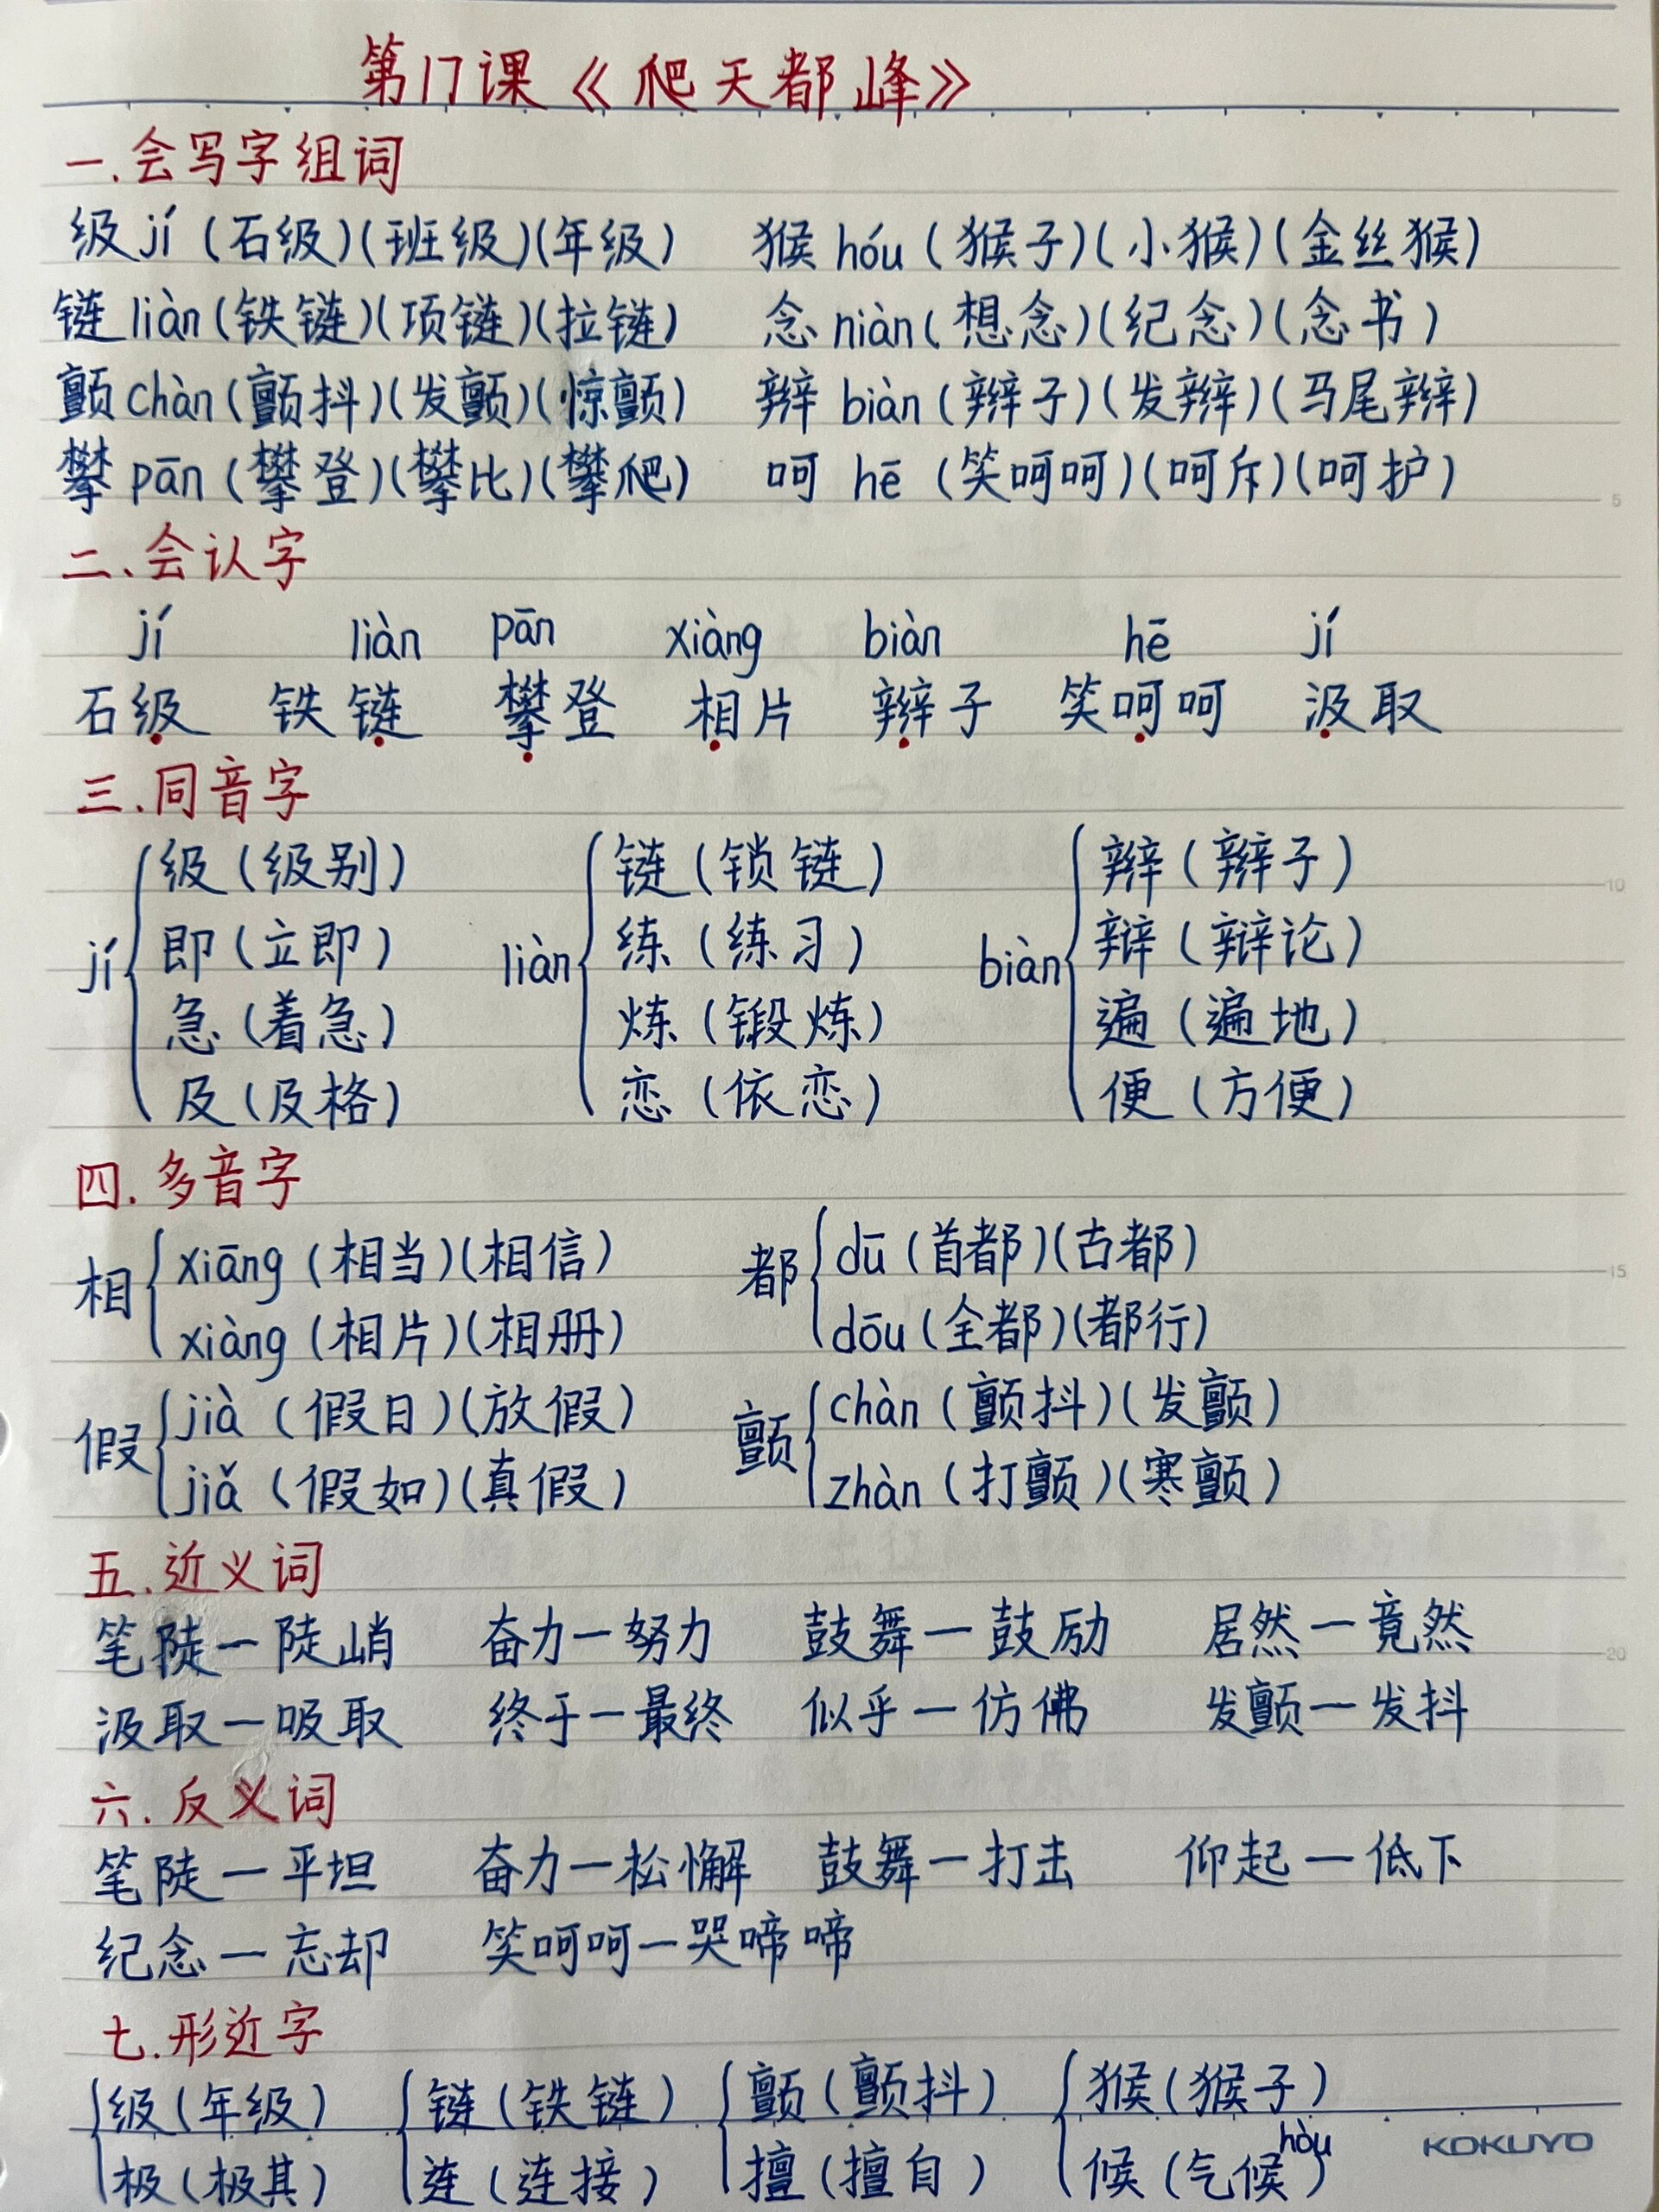 第17课《爬天都峰》
一.会写字组词
级jí(石级)(班级)(年级) 猴hóu(猴子)(小猴)(金丝猴)
链liàn(铁链)(项链)(拉链) 念niàn(想念)(纪念)(念书)
颤chàn(颤抖)(发颤)(惊颤) 辫biàn(辫子)(发辫)(马尾辫)
攀pān(攀登)(攀比)(攀爬) 呵hē(笑呵呵)(呵斥)(呵护)
二、会认字
jí liàn pān xiàng biàn hē jí
石级 铁链 攀登 相片 辫子 笑呵呵 汲取
三.同音字
级(级别) 链(锁链) 辫(辫子)
即(立即) 练(练习) 辩(辩论)
jí liàn biàn
急(着急) 炼(锻炼) 遍(遍地)
及(及格) 恋(依恋) 便(方便)
四.多音字
相 xiāng(相当)(相信) 都 dū(首都)(古都)
xiàng(相片)(相册) dōu(全都)(都行)
假 jià(假日)(放假) 颤 chàn(颤抖)(发颤)
jiǎ(假如)(真假) zhàn(打颤)(寒颤)
五.近义词
笔陡—陡峭 奋力—努力 鼓舞—鼓励 居然—竟然
汲取—吸取 终于—最终 似乎—仿佛 发颤—发抖
六.反义词
笔陡—平坦 奋力—松懈 鼓舞—打击 仰起—低下
纪念—忘却 笑呵呵—哭啼啼
七.形近字
级(年级) 链(铁链) 颤(颤抖) 猴(猴子)
hòu
极(极其) 连(连接) 擅(擅自) 候(气候)
KOKUYO
5
10
15
20